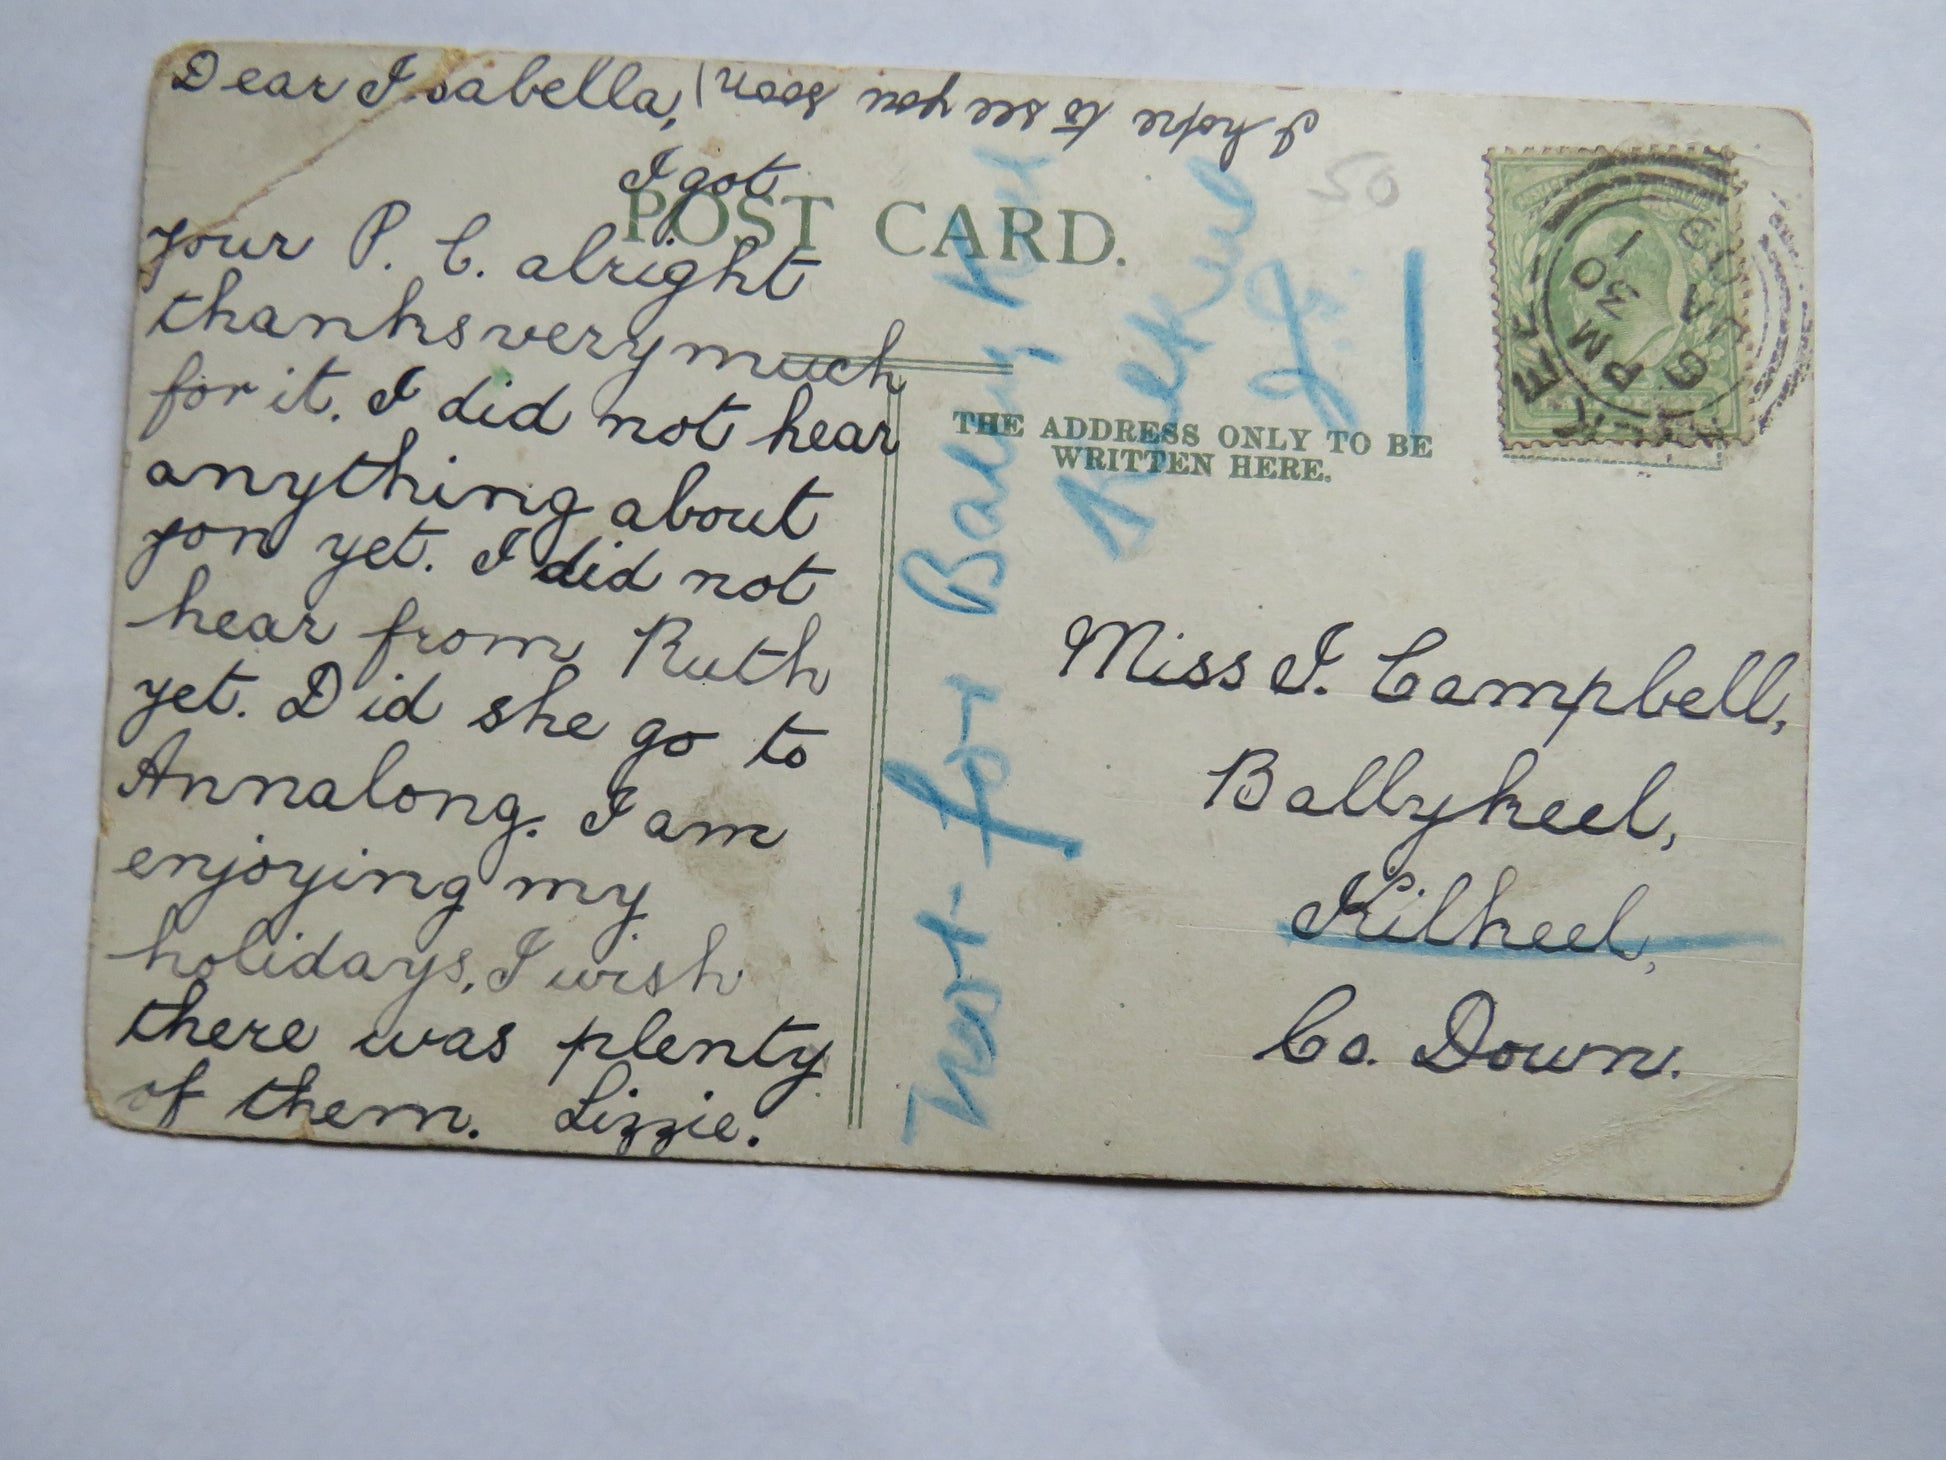 Dear Isabella,
I got
your P. C. alright
thanks very much
for it. I did not hear
anything about
you yet. I did not
hear from Ruth
yet. Did she go to
Annalong. I am
enjoying my
holidays, I wish
there was plenty
of them. Lizzie.
I hope to see you soon
POST CARD.
THE ADDRESS ONLY TO BE
WRITTEN HERE.
Miss I. Campbell,
Ballykeel,
Kilkeel,
Co. Down.
Not for
50
1 30 PM
JA